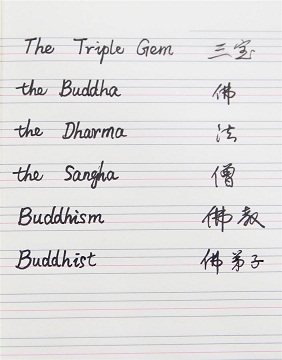 The Triple Gem 三宝
the Buddha 佛
the Dharma 法
the Sangha 僧
Buddhism 佛教
Buddhist 佛弟子